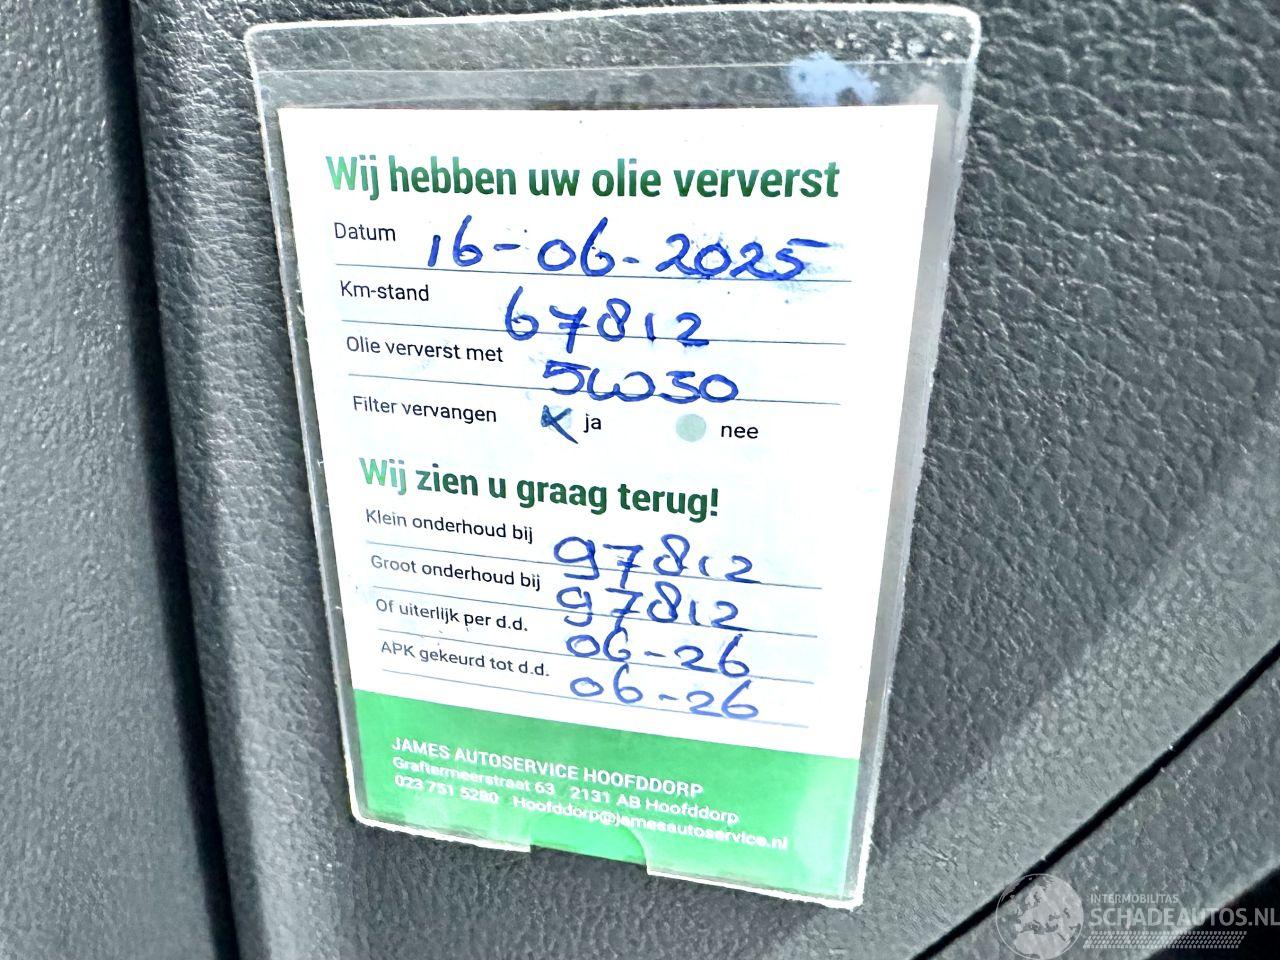 Wij hebben uw olie ververst
Datum 16-06-2025
Km-stand 67812
Olie ververst met 5W30
Filter vervangen ja nee
Wij zien u graag terug!
Klein onderhoud bij 97812
Groot onderhoud bij 97812
Of uiterlijk per d.d. 06-26
APK gekeurd tot d.d. 06-26
JAMES AUTOSERVICE HOOFDDORP
Graftermeerstraat 63 2131 AB Hoofddorp
023 751 5280 Hoofddorp@jamesautoservice.nl
INTERMOBILITAS
SCHADEAUTOS.NL